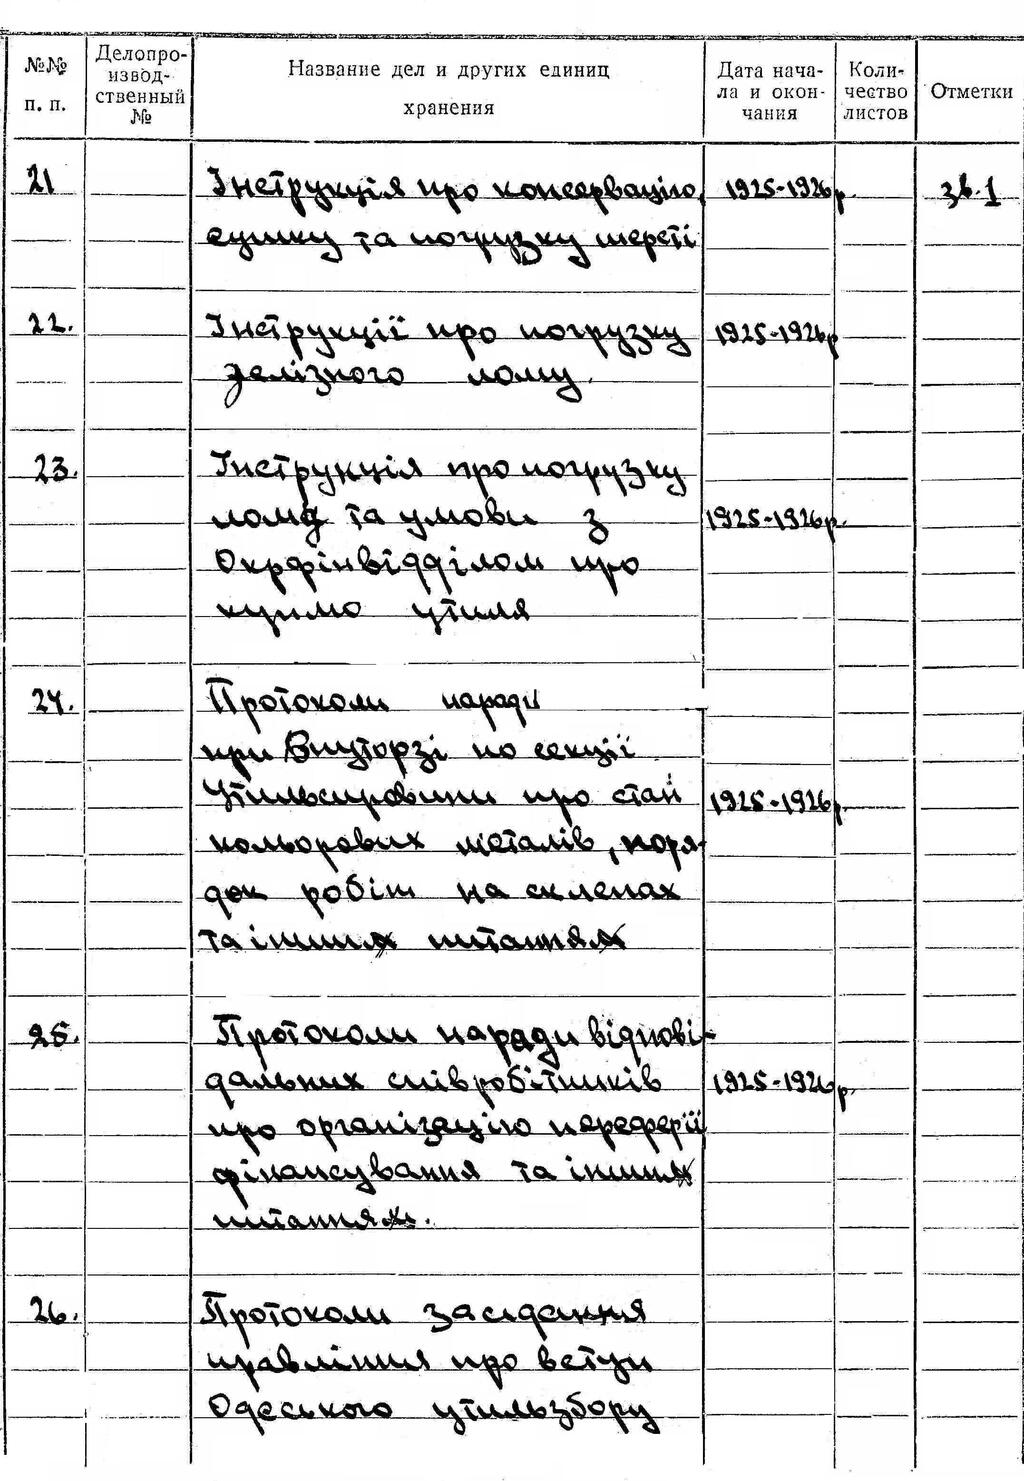 №№ п. п.
Делопро-
извод-
ственный
№
Название дел и других единиц
хранения
Дата нача-
ла и окон-
чания
Коли-
чество
листов
Отметки
21 Інструкція про консервацію, 1925-1926р. зв. 1
сушку та погрузку шерсті
22. Інструкції про погрузку 1925-1926р
зелізного лому.
23. Інструкція про погрузку
лому та умови з 1925-1926р.
Окрфінвідділом про
купмо утиля
24. Протоколи наради
при Внуторзі по секції
Утильсировини про стан 1925-1926р.
кольорових металів, поря-
док робіт на склепах
та інших питаннях
25. Протоколи наради відпові-
дальних співробітників 1925-1926р.
про організацію переферії
фінансування та інших
питаннях.
26. Протоколи засідання
правління про вступ
Одеського утильзбору